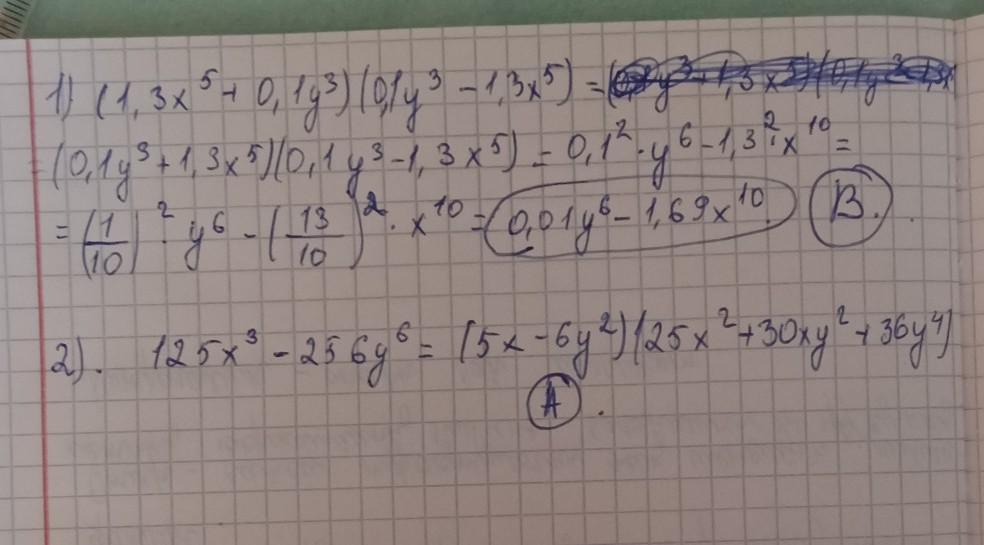 1) (1,3x⁵ + 0,1y³)(0,1y³ - 1,3x⁵) =
= (0,1y³ + 1,3x⁵)(0,1y³ - 1,3x⁵) = 0,1² · y⁶ - 1,3² · x¹⁰ =
= (1/10)² · y⁶ - (13/10)² · x¹⁰ = 0,01y⁶ - 1,69x¹⁰. B.
2). 125x³ - 256y⁶ = (5x - 6y²)(25x² + 30xy² + 36y⁴)
A.